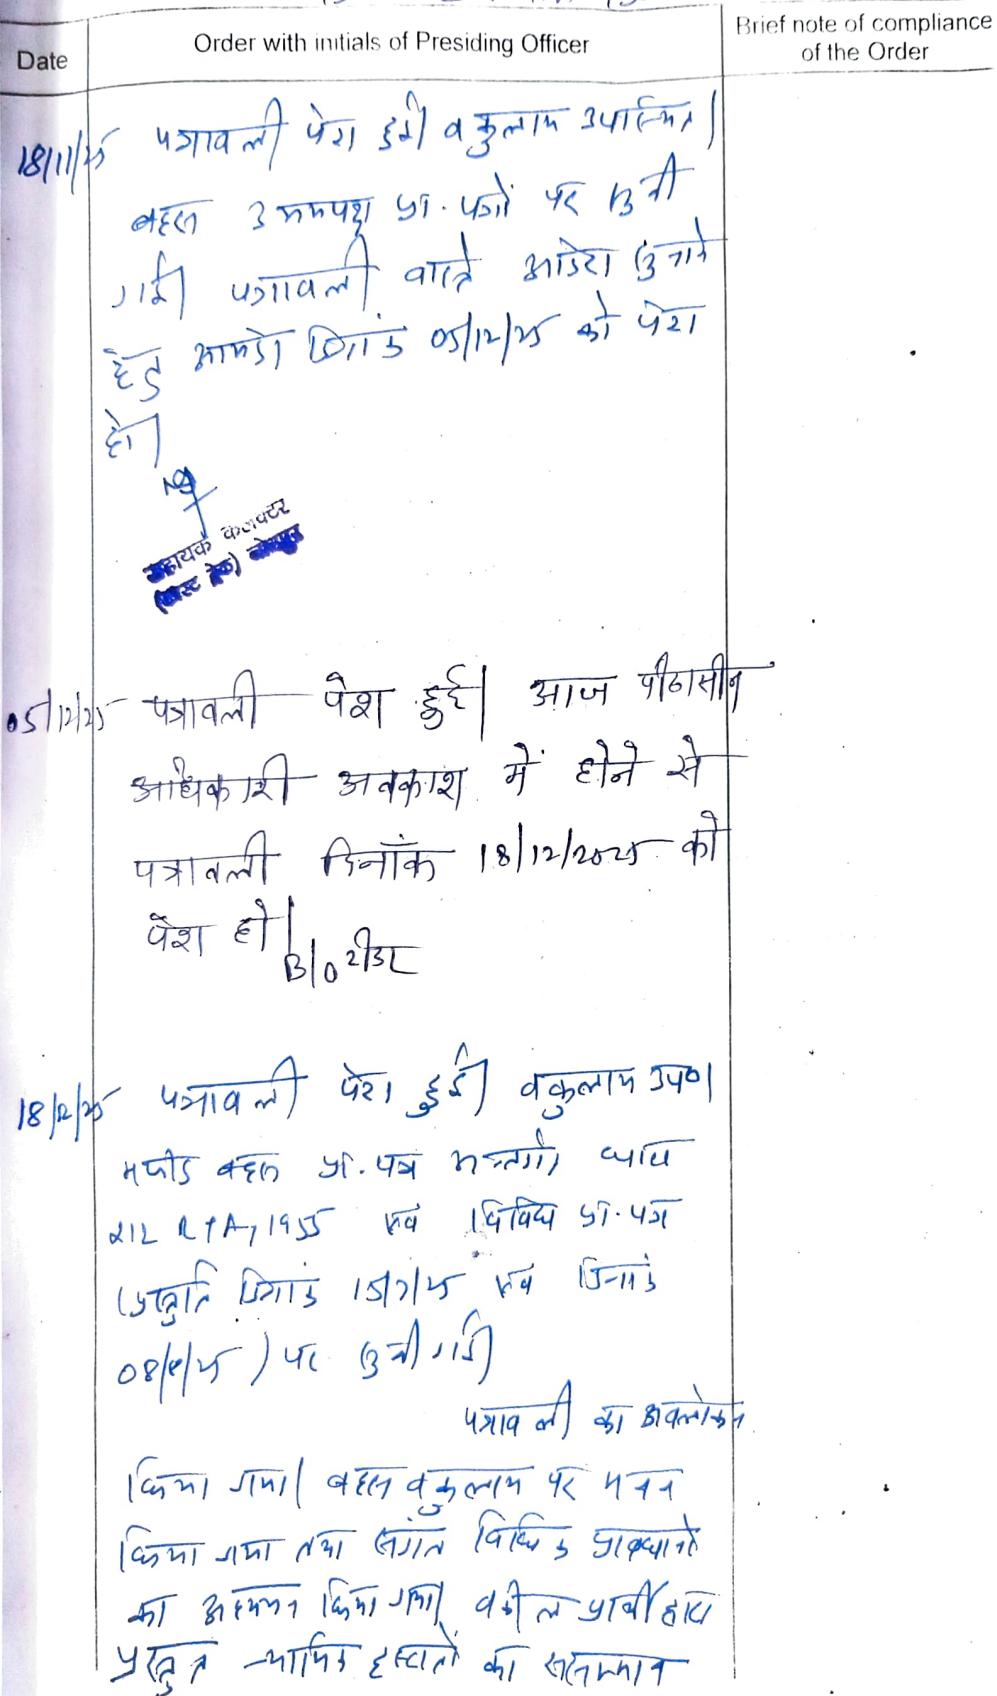 Date
Order with initials of Presiding Officer
Brief note of compliance
of the Order
18/11/25 पत्रावली पेश हुई। वकुलाय उपस्थित।
बहस उभयपक्ष प्रा. पत्रों पर सुनी
गई। पत्रावली वास्ते आदेश सुनाने
हेतु आगामी दिनांक 05/12/25 को पेश
हो।
सहायक कलक्टर
(फास्ट ट्रेक)
05/12/25 पत्रावली पेश हुई। आज पीठासीन
अधिकारी अवकाश में होने से
पत्रावली दिनाँक 18/12/2025 को
पेश हो।
B/o रीडर
18/12/25 पत्रावली पेश हुई। वकुलाय उप०।
बहस प्रा. पत्र अन्तर्गत धारा
212 RTA, 1955 एवं विविध प्रा. पत्र
(प्रस्तुति दिनांक 15/7/25 एवं दिनांक
) पर सुनी गई।
पत्रावली का अवलोकन
किया गया। बहस वकुलाय पर मनन
किया गया तथा संगत विधिक प्रावधानों
का अध्ययन किया गया। वकील प्रार्थी द्वारा
प्रस्तुत न्यायिक दृष्टातों का ससम्मान